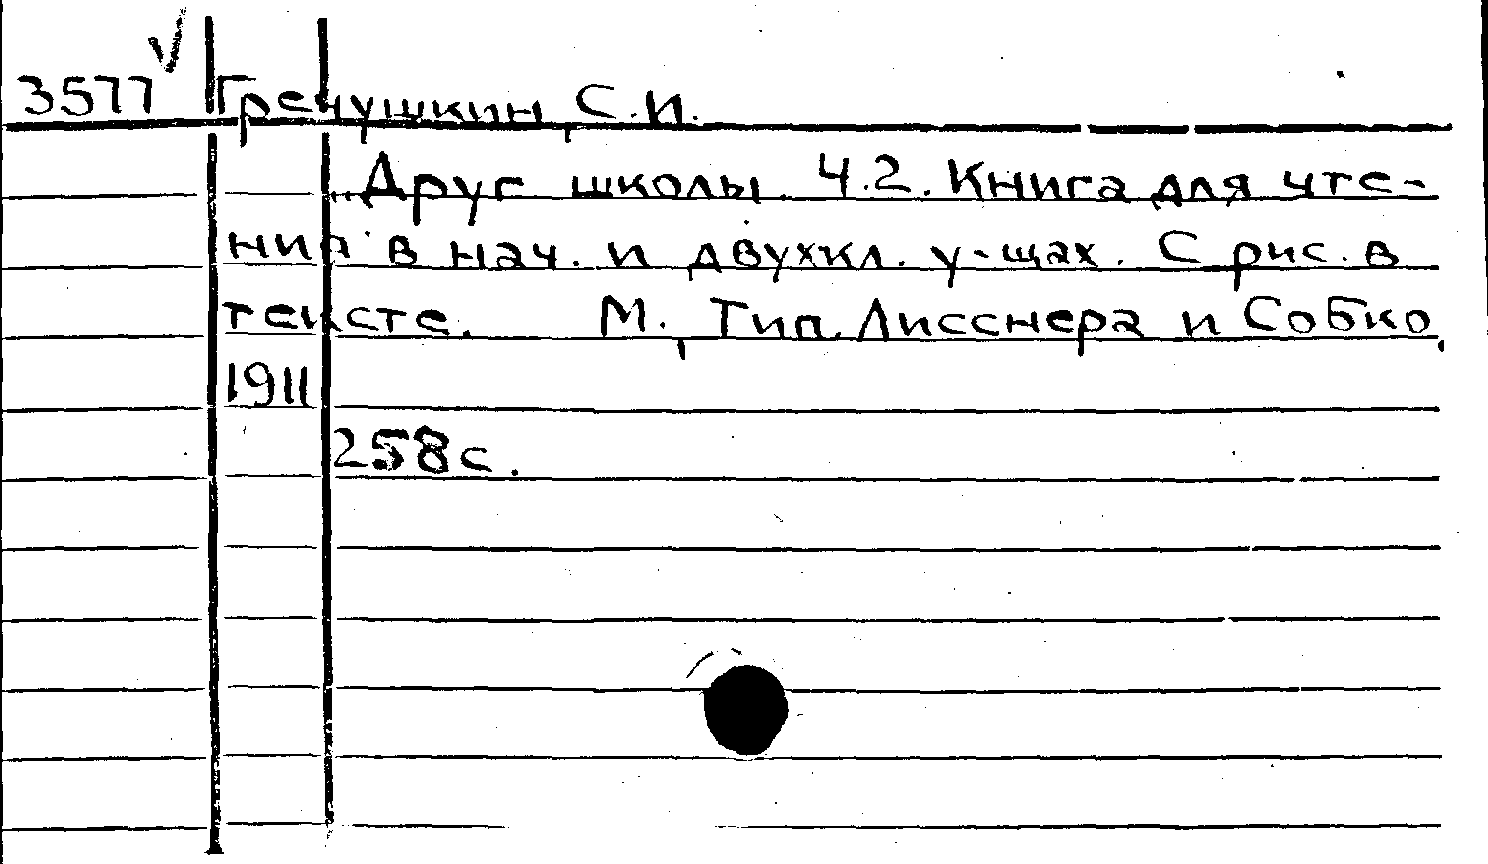 3577 Гречушкин, С.И.
Друг школы. Ч.2. Книга для чте-
ния в нач. и двухкл. у-щах. С рис. в
тексте. М., Тип. Лисснера и Собко,
1911
258с.